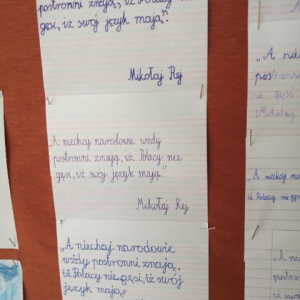 postronni znają, iż Polacy nie
gęsi, iż swój język mają".
Mikołaj Rej
„A niechaj narodowie wżdy
postronni znają, iż Polacy nie
gęsi, iż swój język mają."
Mikołaj Rej
„A niechaj narodowie
wżdy postronni znają,
iż Polacy nie gęsi, iż swój
język mają"
„A nie
post
nie gęsi
Mikołaj
„A niechaj na
iż Polacy nie gę
„A nie
post